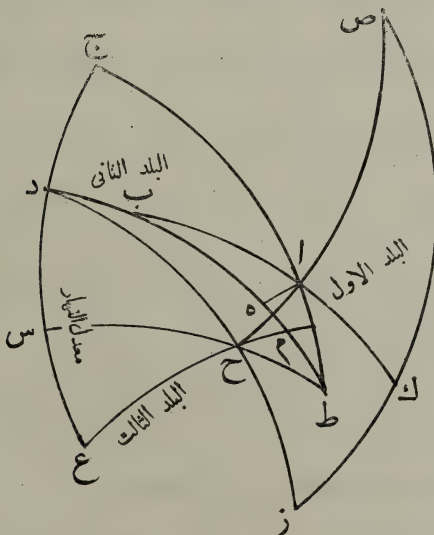 ص
ج
د
البلد الثانى
ب
ا
البلد الاول
ه
معدل النهار
س
ح
م
ك
ط
البلد الثالث
ع
ز